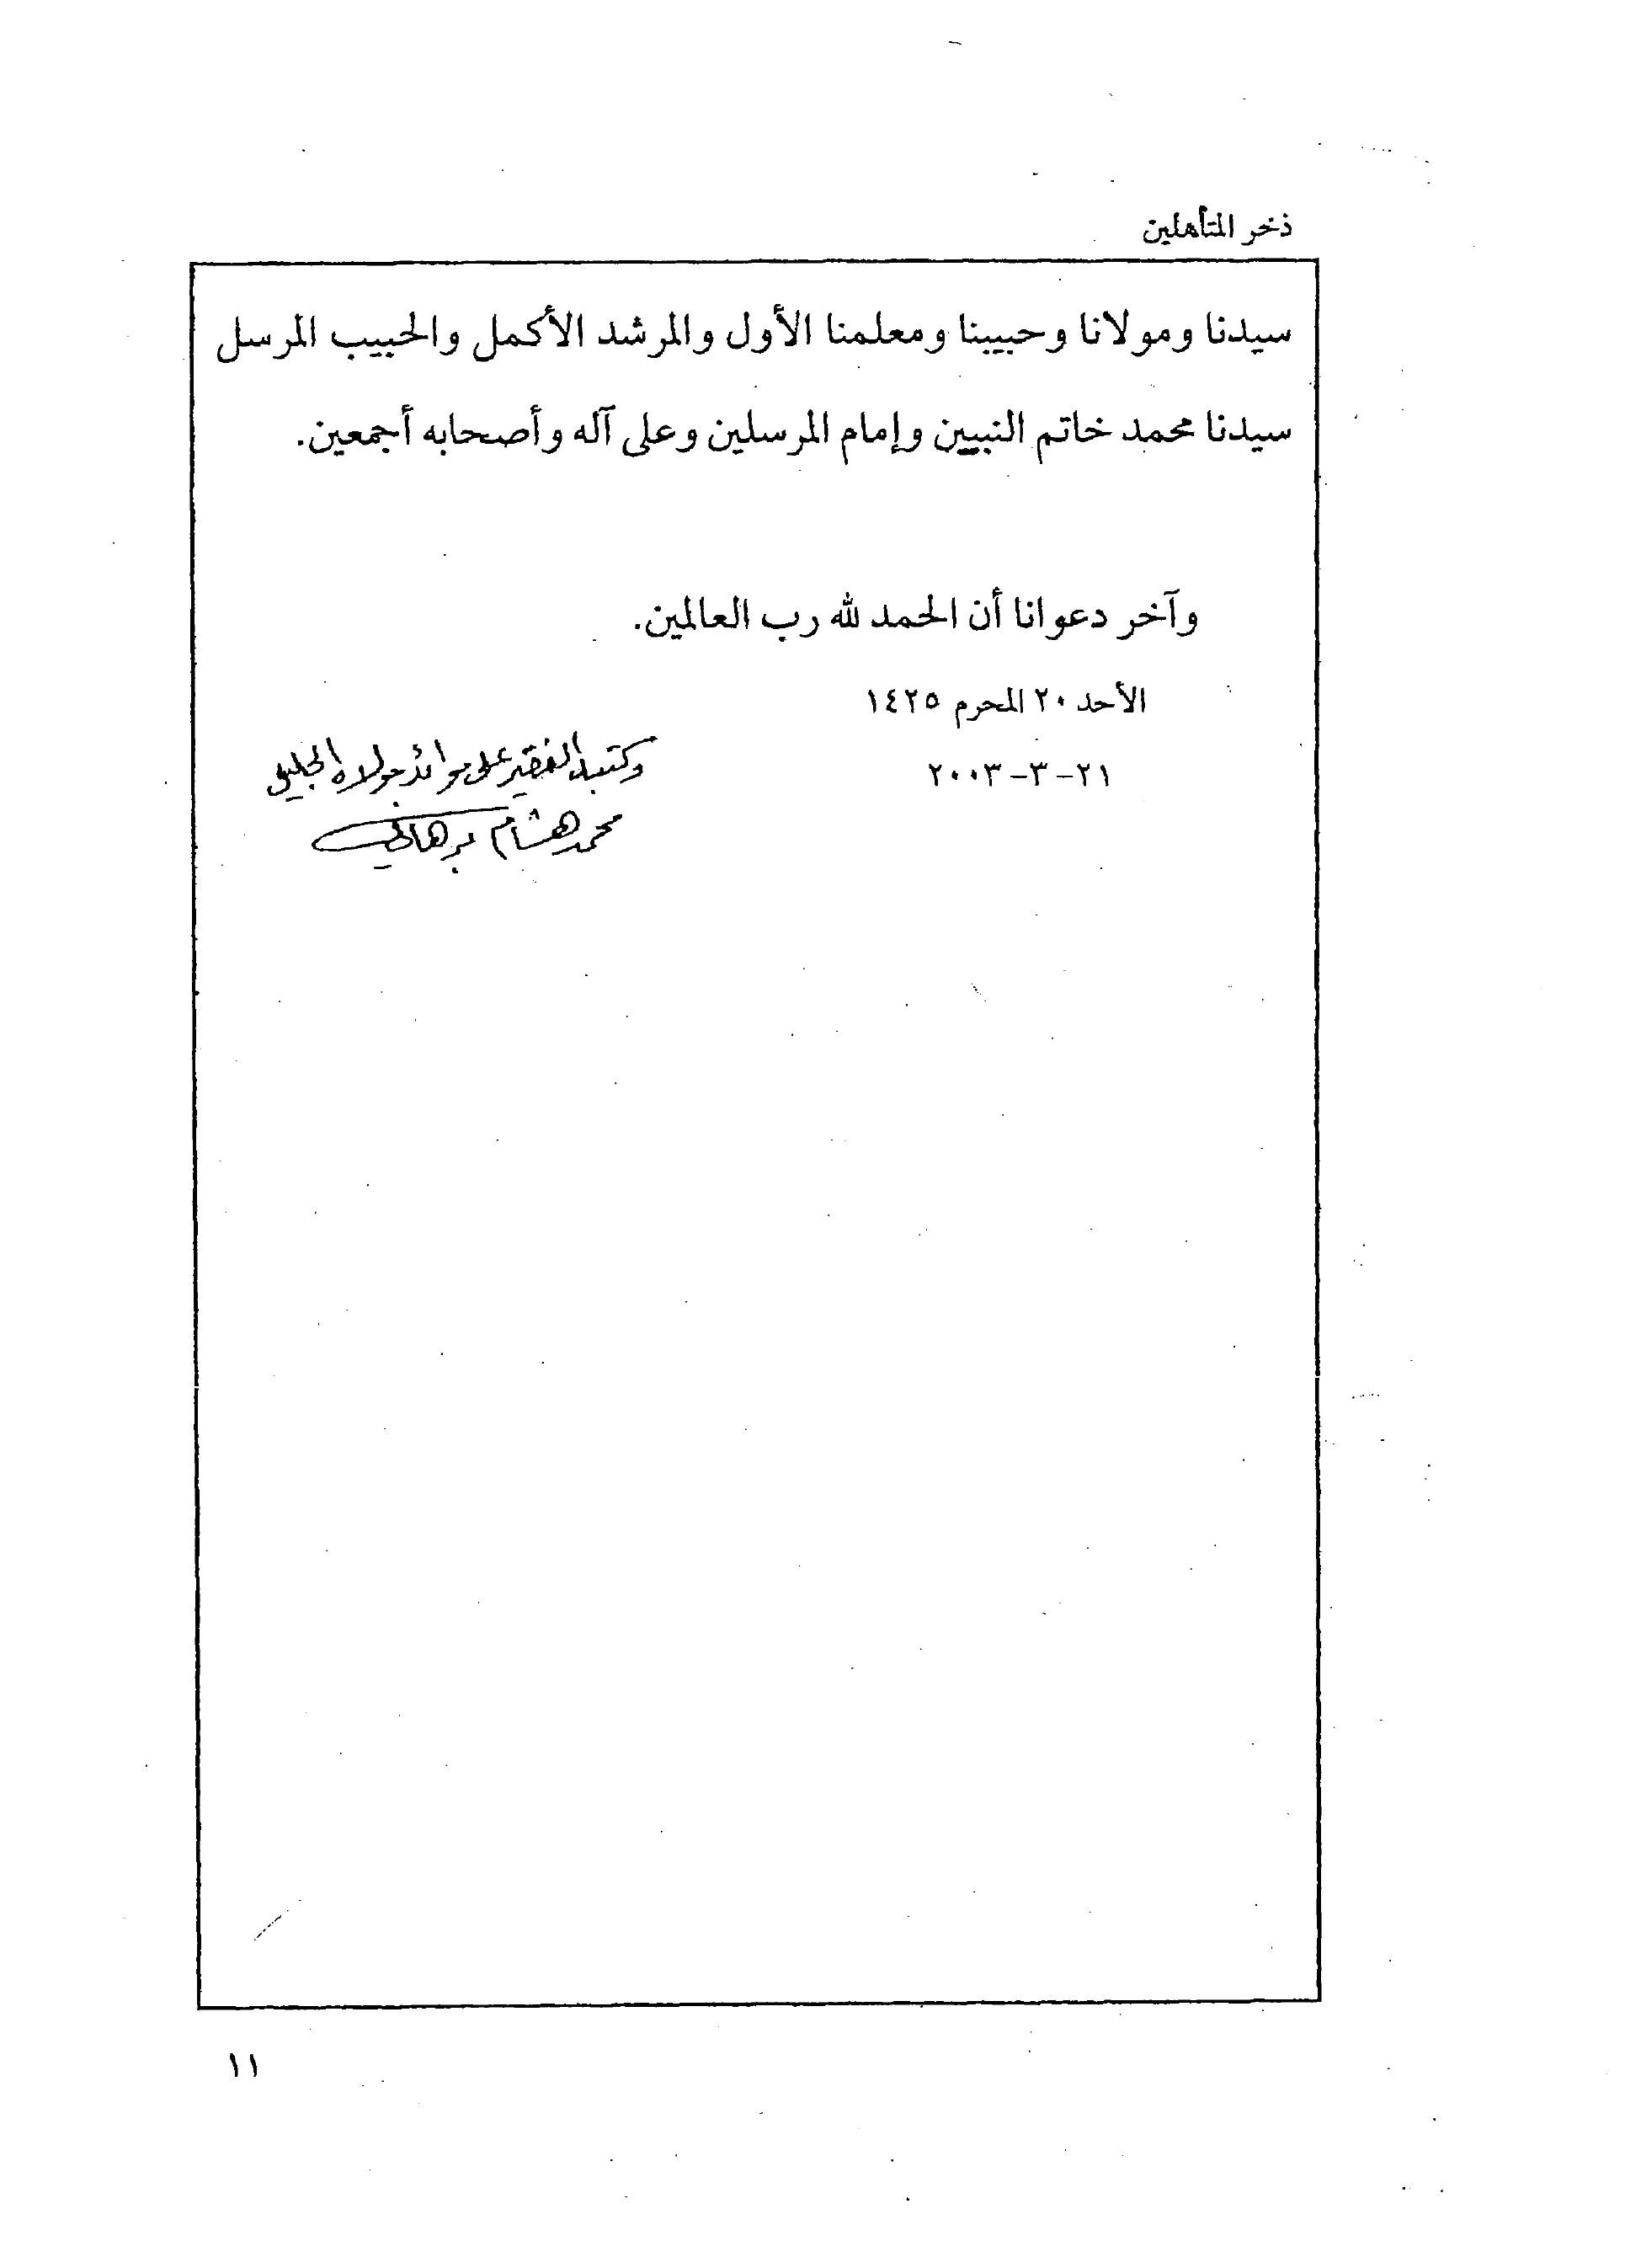 ذخر المتأهلين
سيدنا ومولانا وحبيبنا ومعلمنا الأول والمرشد الأكمل والحبيب المرسل
سيدنا محمد خاتم النبيين وإمام المرسلين وعلى آله وأصحابه أجمعين.
وآخر دعوانا أن الحمد لله رب العالمين.
الأحد ٢٠ المحرم ١٤٢٥
٢١-٣-٢٠٠٣
وكتبه الفقير على موائد مولاه الجليل
محمد هشام برهاني
١١